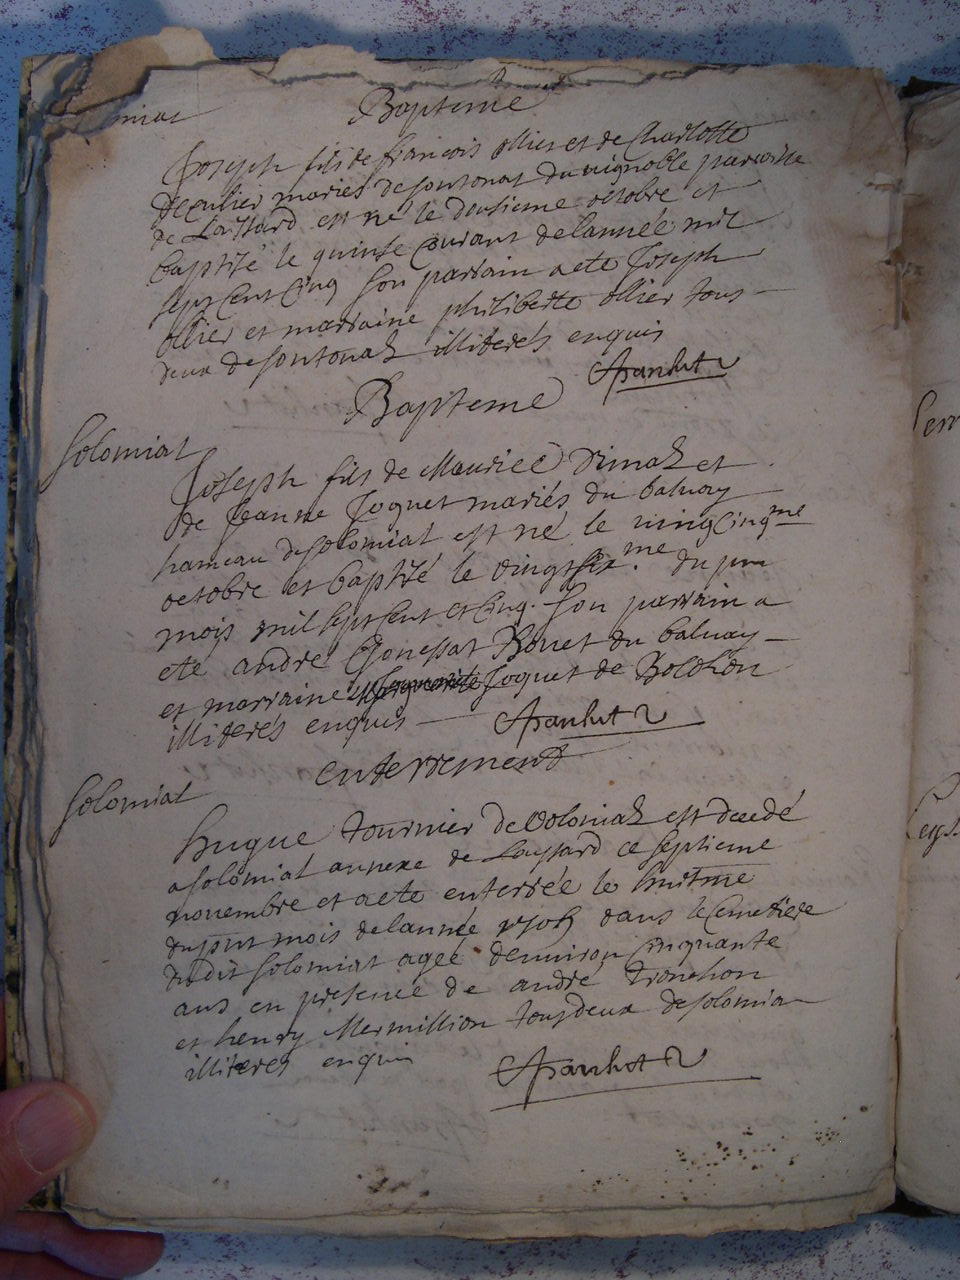 Bapteme
Joseph fils de francois ollier et de Charlotte
mariés de soutonas du vignoble parroisse
de Laissard est né le dousieme octobre et
baptisé le quinse courant de lannéé mil
sept Cent Cinq son parrain a eté Joseph
ollier et marraine philiberte ollier tous
deux de soutonas illiterés enquis
Bapteme
solomiat
Joseph fils de Maurice et
de Jeanne Joquet mariés du balvay
hameau de solomiat est né le vingCinqme
octobre et baptisé le vingtsix.me du
mois mil sept Cent et Cinq. son parrain a
eté andré Bonet du balvay
et marraine Joquet de Bolozon
illiterés enquis
enterrement
solomiat
hugue tournier de volonias est decedé
a solomiat annexe de Layssard ce septieme
novembre et a ete enterréé le huitme
du pnt mois de lannéé 1705 dans le Cemetiere
dudit solomiat ageé denviron Cinquante
ans en presence de andré tronchon
et henry Mermillion tous deux de solomia
illiteres enquis